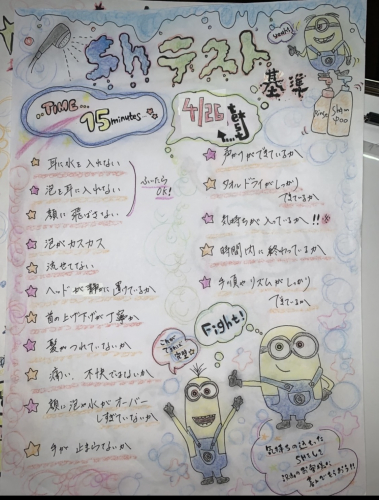 Yeah!!
Shテスト
基準
Rinse
Sham
poo
TIME
15minutes
4/26
耳に水を入れない
泡を耳に入れない
顔に飛ばさない
ふいたら
OK!
泡がスカスカ
流せてない
ヘッドが静かに置けているか
首の上げ下げが丁寧か
髪がつれていないか
痛い、不快ではないか
顔に泡か水がオーバー
しすぎていないか
手が止まらてないか
声かけができているか
タオルドライがしっかり
できているか
気持ちが入っているか!!
時間内に終わっているか
手順やリズムがしっかり
できてるか
Fight!
これが
できたら
気持ちの込もった
Shをして
沢山のお客様に